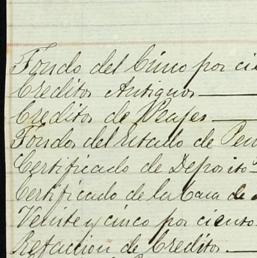 Fondo del Cinco por cie
Creditos Antiguos
Creditos de Peajes
Fondos del ritado de Pen
Certificado de Deposito
Certificado de la Casa de
Veinte y cinco por ciento
Refaccion de Creditos